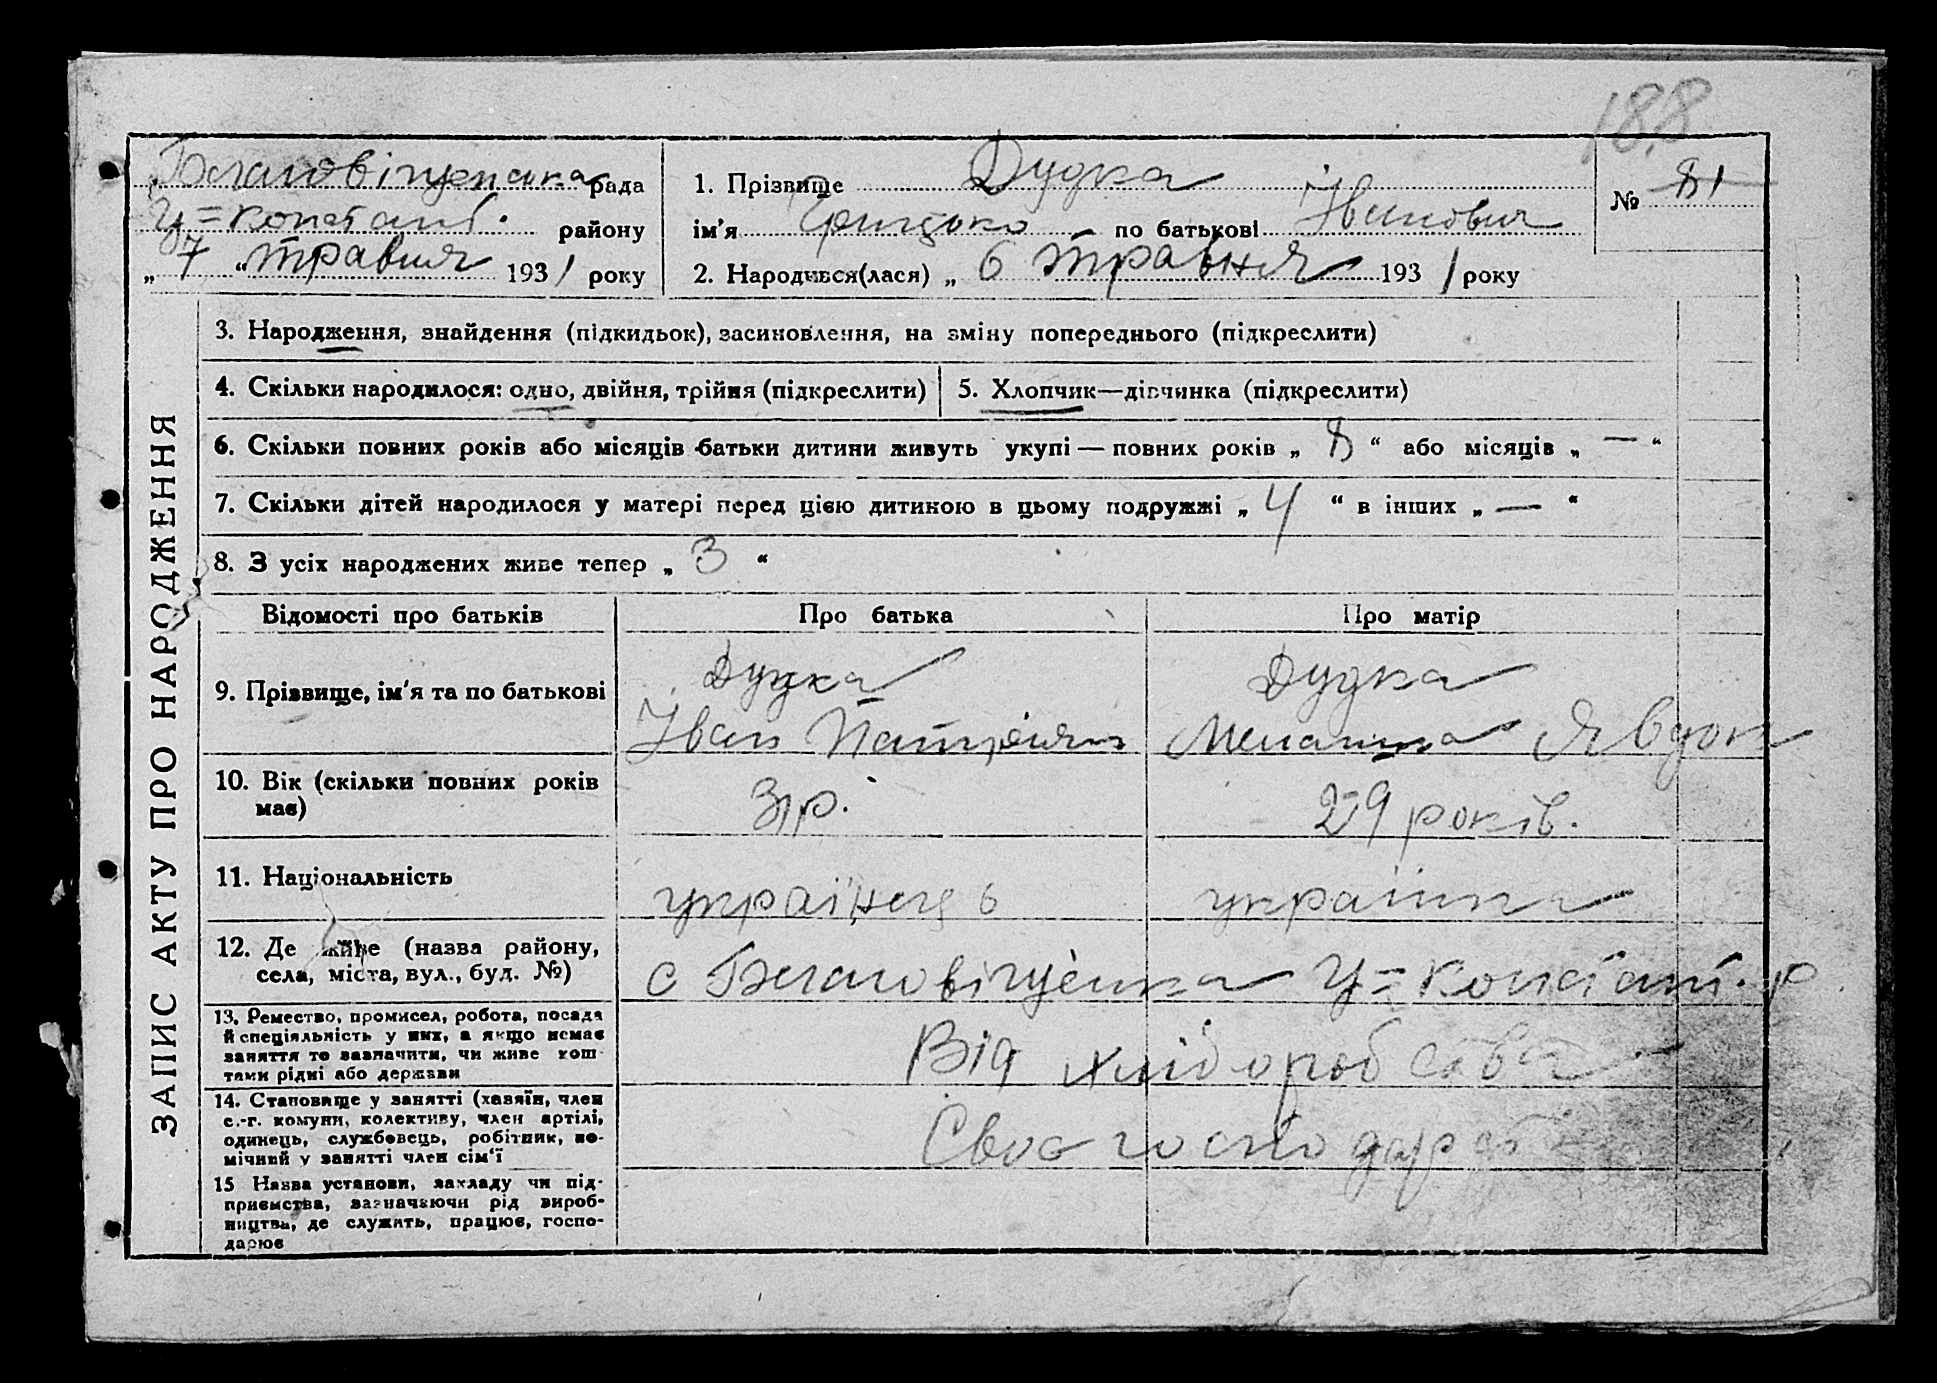 188
Благовіщенська рада
Ц=Констант. району
„ 7 “ травня 1931 року
1. Прізвище Дудка
ім'я Грицько по батькові Іванович
2. Народився(лася) „ 6 травня 1931 року
№ 81
ЗАПИС АКТУ ПРО НАРОДЖЕННЯ
3. Народження, знайдення (підкидьок), засиновлення, на зміну попереднього (підкреслити)
4. Скільки народилося: одно, двійня, трійня (підкреслити)
5. Хлопчик—дівчинка (підкреслити)
6. Скільки повних років або місяців батьки дитини живуть укупі — повних років „ 8 “ або місяців „ — “
7. Скільки дітей народилося у матері перед цією дитиною в цьому подружжі „ 4 “ в інших „ — “
8. З усіх народжених живе тепер „ 3 “
Відомості про батьків
Про батька
Про матір
9. Прізвище, ім'я та по батькові
Дудка
Іван
Дудка
Меланка Явдок
10. Вік (скільки повних років
має)
31р.
29 років.
11. Національність
українець
українка
12. Де живе (назва району,
села, міста, вул., буд. №)
с Благовіщенка Ц=Констант. р.
13. Ремество, промисел, робота, посада
й спеціяльність у них, а якщо немає
заняття то зазначити, чи живе кош-
тами рідні або держави
Від хліборобства
14. Становище у занятті (хазяїн, член
с.-г. комуни, колективу, член артілі,
одинець, службовець, робітник, по-
мічний у занятті член сім'ї
Своє господар
15 Назва установи, закладу чи під-
приємства, зазначаючи рід вироб-
ництва, де служить, працює, госпо-
дарює